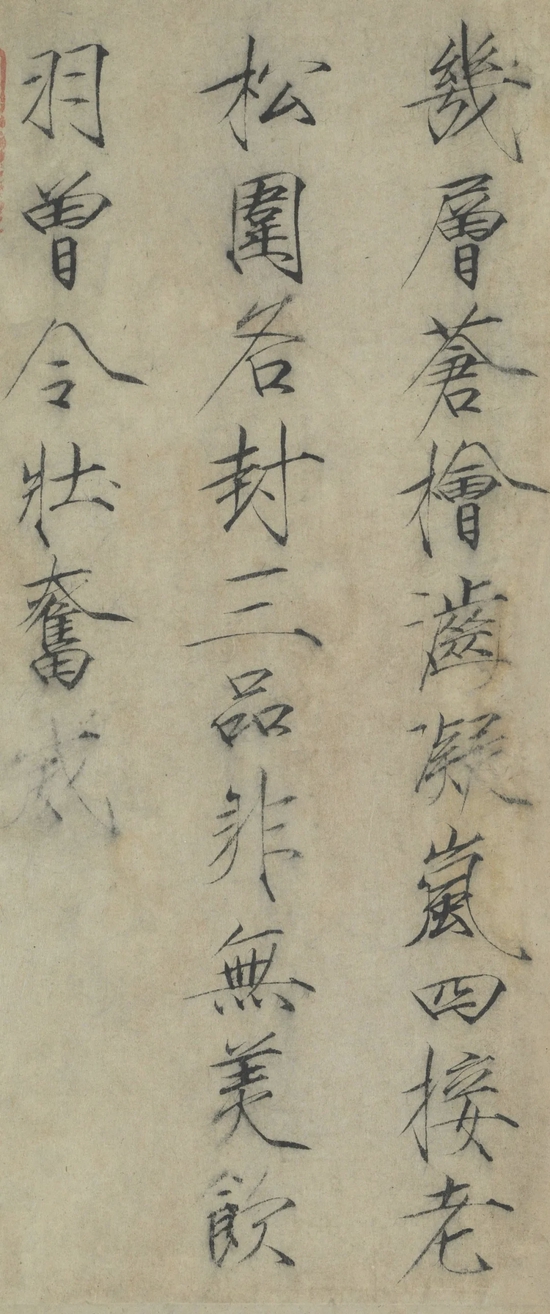 幾層蒼檜濇凝嵐四接老
松圍各封三品非無美飲
羽曾令壯奮